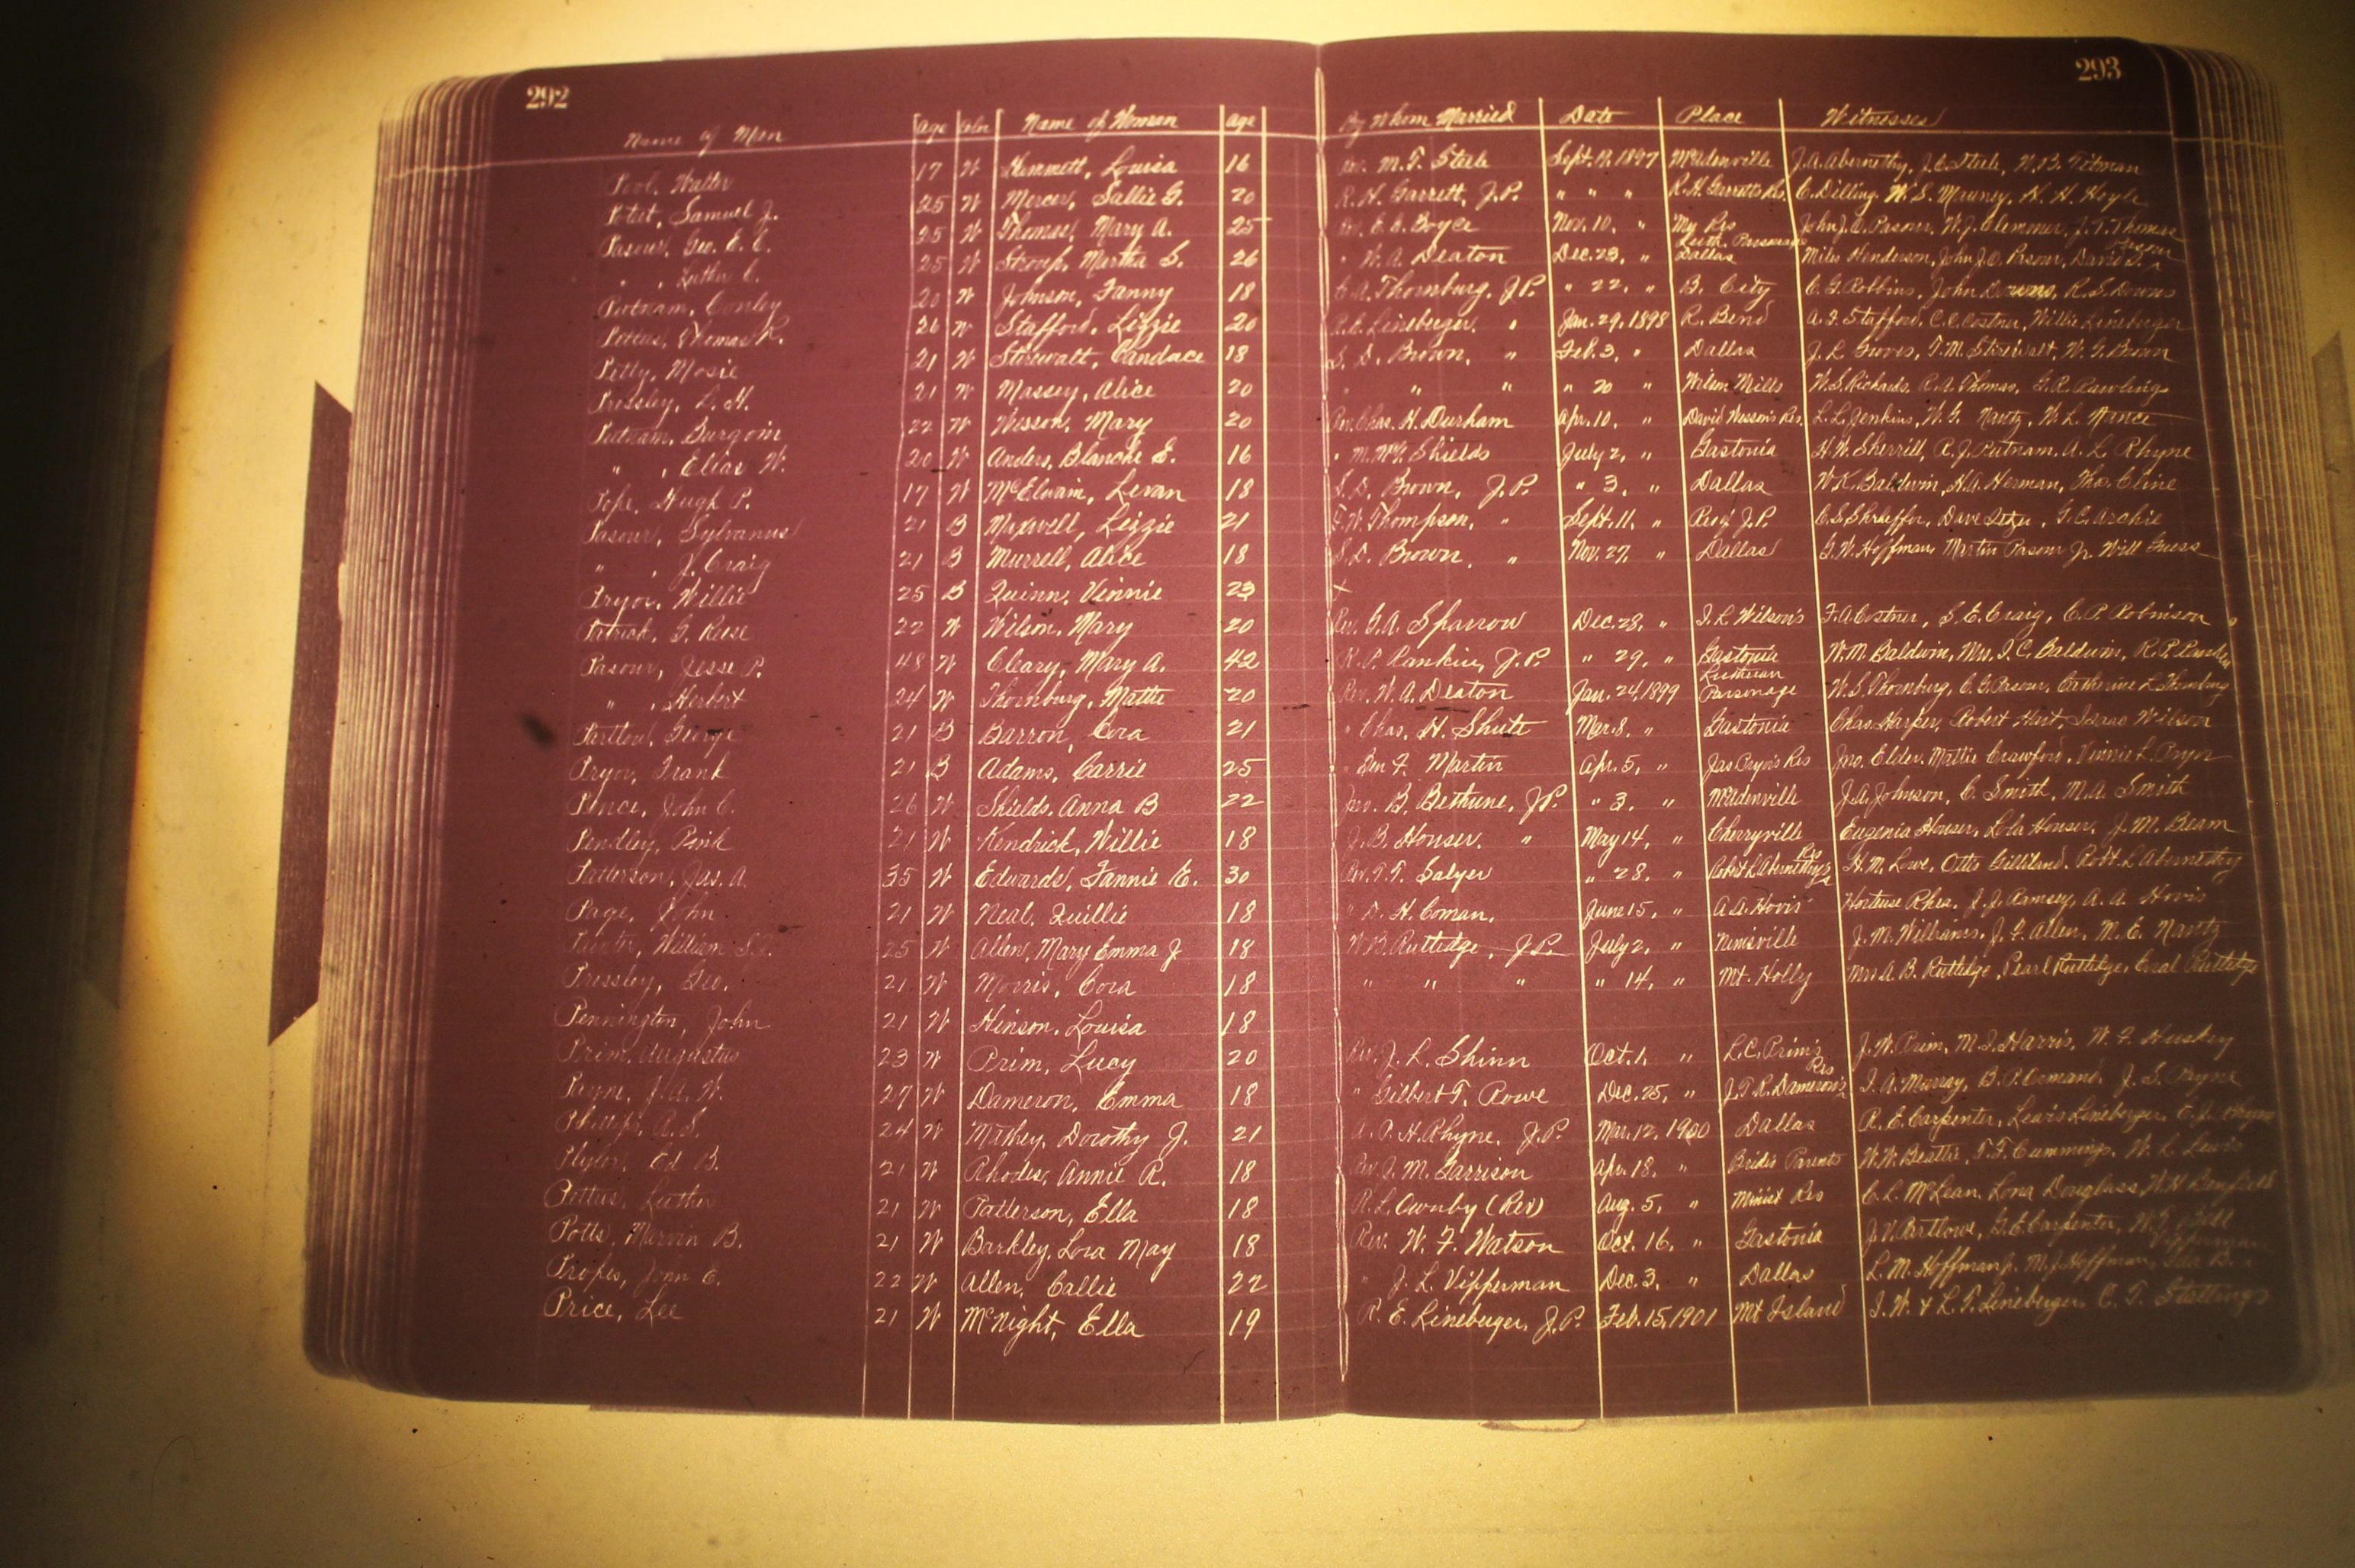 292 293
Name of Man Age Color Name of Woman Age By Whom Married Date Place Witnesses
Pool, Walter 17 W Hammett, Louisa 16 Rev. M. T. Steele Sept. 12, 1897 McAdenville J. A. Abernethy, J. C. Steele, W. B. Titman
Poteet, Samuel J. 25 W Mercer, Sallie G. 20 R. H. Garrett, J.P. " " " R. H. Garretts Res. C. Dilling, W. S. Mauney, H. H. Hoyle
Pasour, Geo. E. C. 25 W Thomas, Mary A. 25 Rev. E. E. Boyce Nov. 10, " My Res John J. C. Pasour, W. J. Clemmer, J. T. Thomas
" , Luther C. 25 W Stroup, Martha S. 26 " W. A. Deaton Dec. 23, " Luth. Parsonage Dallas Miles Henderson, John J. C. Pasour, David T. Pasour
Putnam, Conley 20 W Johnson, Fanny 18 C. A. Thornburg, J.P. " 22, " B. City C. G. Robbins, John Downs, R. S. Downs
Pettus, Thomas R. 26 W Stafford, Lizzie 20 R. C. Lineberger, " Jan. 29, 1898 R. Bend A. F. Stafford, C. C. Costner, Willie Lineberger
Petty, Mosie 21 W Stirewalt, Candace 18 S. D. Brown, " Feb. 3, " Dallas J. L. Groves, T. M. Stirewalt, W. G. Brown
Pressley, L. H. 21 W Massey, Alice 20 " " " " 20 " Wilson Mills W. S. Richards, R. A. Thomas, G. R. Rawlings
Putnam, Burgoin 22 W Wesson, Mary 20 Rev. Chas. H. Durham Apr. 10, " David Wesson's Res. L. L. Jenkins, W. G. Nantz, W. L. Nance
" , Elias W. 20 W Anders, Blanche E. 16 " M. McG. Shields July 2, " Gastonia H. W. Sherrill, R. J. Putnam, A. L. Rhyne
Pope, Hugh P. 17 W McElwain, Levan 18 S. D. Brown, J.P. " 3, " Dallas W. K. Baldwin, H. A. Herman, Tho. Cline
Pasour, Sylvanus 21 B Maxwell, Lizzie 21 F. W. Thompson, " Sept. 11, " C. S. Shaeffer, G. C. Archie
" , J. Craig 21 B Murrell, Alice 18 S. D. Brown, " Nov. 27, " Dallas G. W. Hoffman, Martin Pasour Jr. Will Guess
Pryor, Willie 25 B Quinn, Vinnie 23 x
Patrick, G. Reese 22 W Wilson, Mary 20 Rev. G. A. Sparrow Dec. 28, " J. L. Wilson's F. A. Costner, S. E. Craig, C. P. Robinson
Pasour, Jesse P. 48 W Cleary, Mary A. 42 R. P. Rankin, J.P. " 29, " Gastonia W. M. Baldwin, Mrs. I. C. Baldwin, R. P. Rankin
" , Herbert 24 W Thornburg, Mattie 20 Rev. W. A. Deaton Jan. 24, 1899 Lutheran Parsonage W. S. Thornburg, C. G. Pasour, Catherine L. Thornburg
Partlow, George 21 B Barron, Cora 21 " Chas. H. Shute Mar. 8, " Gastonia Chas. Harper, Robert Hart, Isaac Wilson
Pryor, Frank 21 B Adams, Carrie 25 " Ben F. Martin Apr. 5, " Jas Pryor's Res Jno. Elder, Mattie Crawford, Vinnie L. Pryor
Pence, John C. 26 W Shields, Anna B 22 Geo. B. Bethune, J.P. " 3, " McAdenville J. A. Johnson, C. Smith, M. A. Smith
Pendley, Pink 21 W Kendrick, Willie 18 J. B. Houser, " May 14, " Cherryville Eugenia Houser, Lola Houser, J. M. Beam
Patterson, Jas. A. 35 W Edwards, Fannie E. 30 Rev. T. T. Salyer " 28, " Robert L. Abernethy's Res H. M. Lowe, Otto Gilliland, Robt. L. Abernethy
Page, John 21 W Neal, Quillie 18 " D. H. Coman, June 15, " A. A. Hovis Hortense Rhea, J. J. Ramsey, A. A. Hovis
William 25 W Allen, Mary Emma J 18 W. B. Rutledge, J.P. July 2, " Nimsville J. M. Williams, J. F. Allen, M. E. Nantz
Pressley, Geo. 21 W Morris, Cora 18 " " " " 14, " Mt. Holly Mrs A. B. Rutledge, Pearl Rutledge, Coral Rutledge
Pennington, John 21 W Hinson, Louisa 18
Prim, Augustus 23 W Prim, Lucy 20 Rev. J. L. Shinn Oct. 1, " L. C. Prim's Res J. W. Prim, M. I. Harris, W. F. Huskey
Payne, J. A. W. 27 W Dameron, Emma 18 " Gilbert T. Rowe Dec. 25, " J. T. R. Dameron's I. A. Murray, B. P. Ormand, J. S. Payne
Phillips, R. S. 24 W Mathey, Dorothy J. 21 A. P. H. Rhyne, J.P. Mar. 12, 1900 Dallas R. E. Carpenter, Lewis Lineberger, E. J. Rhyne
Plyler, Ed B. 21 W Rhodes, Annie R. 18 Rev. A. M. Garrison Apr. 18, " Brides Parents W. W. Beattie, T. F. Cummings, W. L. Lewis
Pettus, Luther 21 W Patterson, Ella 18 R. L. Ownby (Rev) Aug. 5, " Minist Res C. L. McLean, Lona Douglass,
Potts, Marvin B. 21 W Barkley, Lora May 18 Rev. W. F. Watson Oct. 16, " Gastonia J. V. Partlowe, G. E. Carpenter, W. G. Bell
Propes, John E. 22 W Allen, Callie 22 " J. L. Vipperman Dec. 3, " Dallas L. M. Hoffman Jr. M. J. Hoffman, Ida B. Vipperman
Price, Lee 21 W McNight, Ella 19 R. E. Lineberger, J.P. Feb. 15, 1901 Mt Island J. W. & L. P. Lineberger, C. T. Stallings